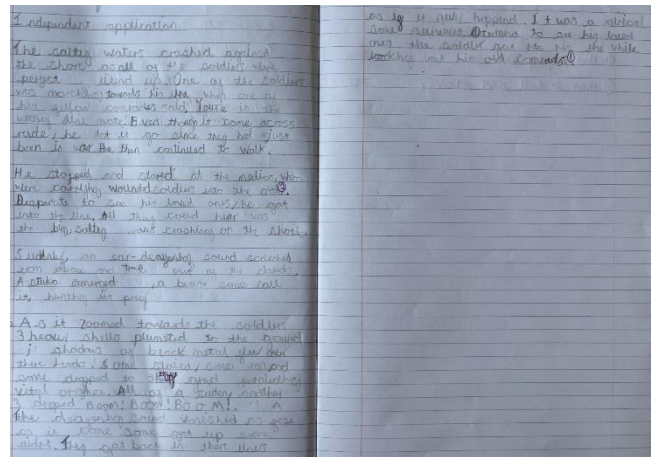 Independent application
The salty waters crashed against
the shore as all of the soldiers were
lined up. One of the soldiers
was marching towards his line when one of
his comrades said, "You're in the
wrong line mate." Even though it come across
rude, he let it go since they had just
been in war. He then continued to walk.
He stopped and stared at the medics who
were carrying wounded soldiers over the
Desperate to see his loved ones, he got
into the line. All they could hear was
the big, salty crashing on the shore.
Suddenly, an ear-deafening sound screeched
out of the clouds.
A stuka emerged, a
hunting its prey
As it zoomed towards the soldiers
3 heavy shells plumeted to the ground
shadows of black metal flew over
there heads. Some stared, some ran and
some dropped to protecting
vital organs. All of a sudden, another
3 dropped Boom! Boom! Boom!
The deafening sound vanished as
some got up some
didnt. They got back in there lines
as if it never happend. It was a
some survived. to see his loved
ones the soldier got to his line while
looking at his old comrads.